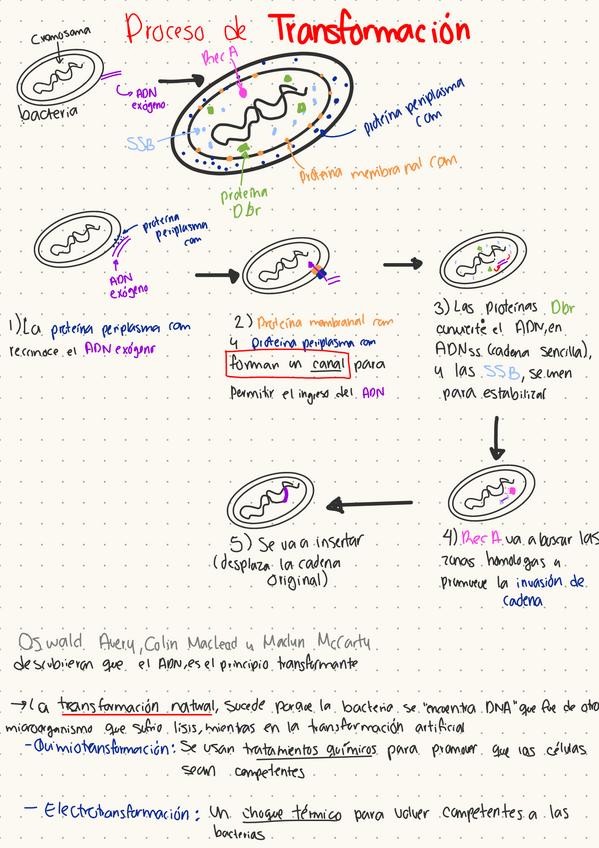 Proceso de Transformación
Cromosoma
bacteria
ADN
exógeno
Rec A
SSB
proteína periplasma
com
proteína membranal com
proteína
Dbr
proteína
periplasma
com
ADN
exógeno
1) La proteína periplasma com
reconoce el ADN exógeno
2) Proteína membranal com
y proteína periplasm com
forman un canal para
Permitir el ingreso del ADN
3) Las Proteínas Dbr
convierte el ADN, en
ADNss (cadena sencilla),
y las SSB, se unen
para estabilizar
4) Rec A va a buscar las
zonas homologas y
promueve la invasión de
cadena
5) Se va a insertar
(desplaza la cadena
original)
Oswald Avery, Colin Macleod y Maclyn McCarty
descubrieron que el ADN, es el principio transformante
→ La transformación natural, sucede porque la bacteria se "encuentra DNA" que fue de otro
microorganismo que sufrio lisis, mientras en la transformación artificial
- Quimiotransformación: Se usan tratamientos químicos para promover que las células
sean competentes
- Electrotransformación: Un choque térmico para volver competentes a las
bacterias